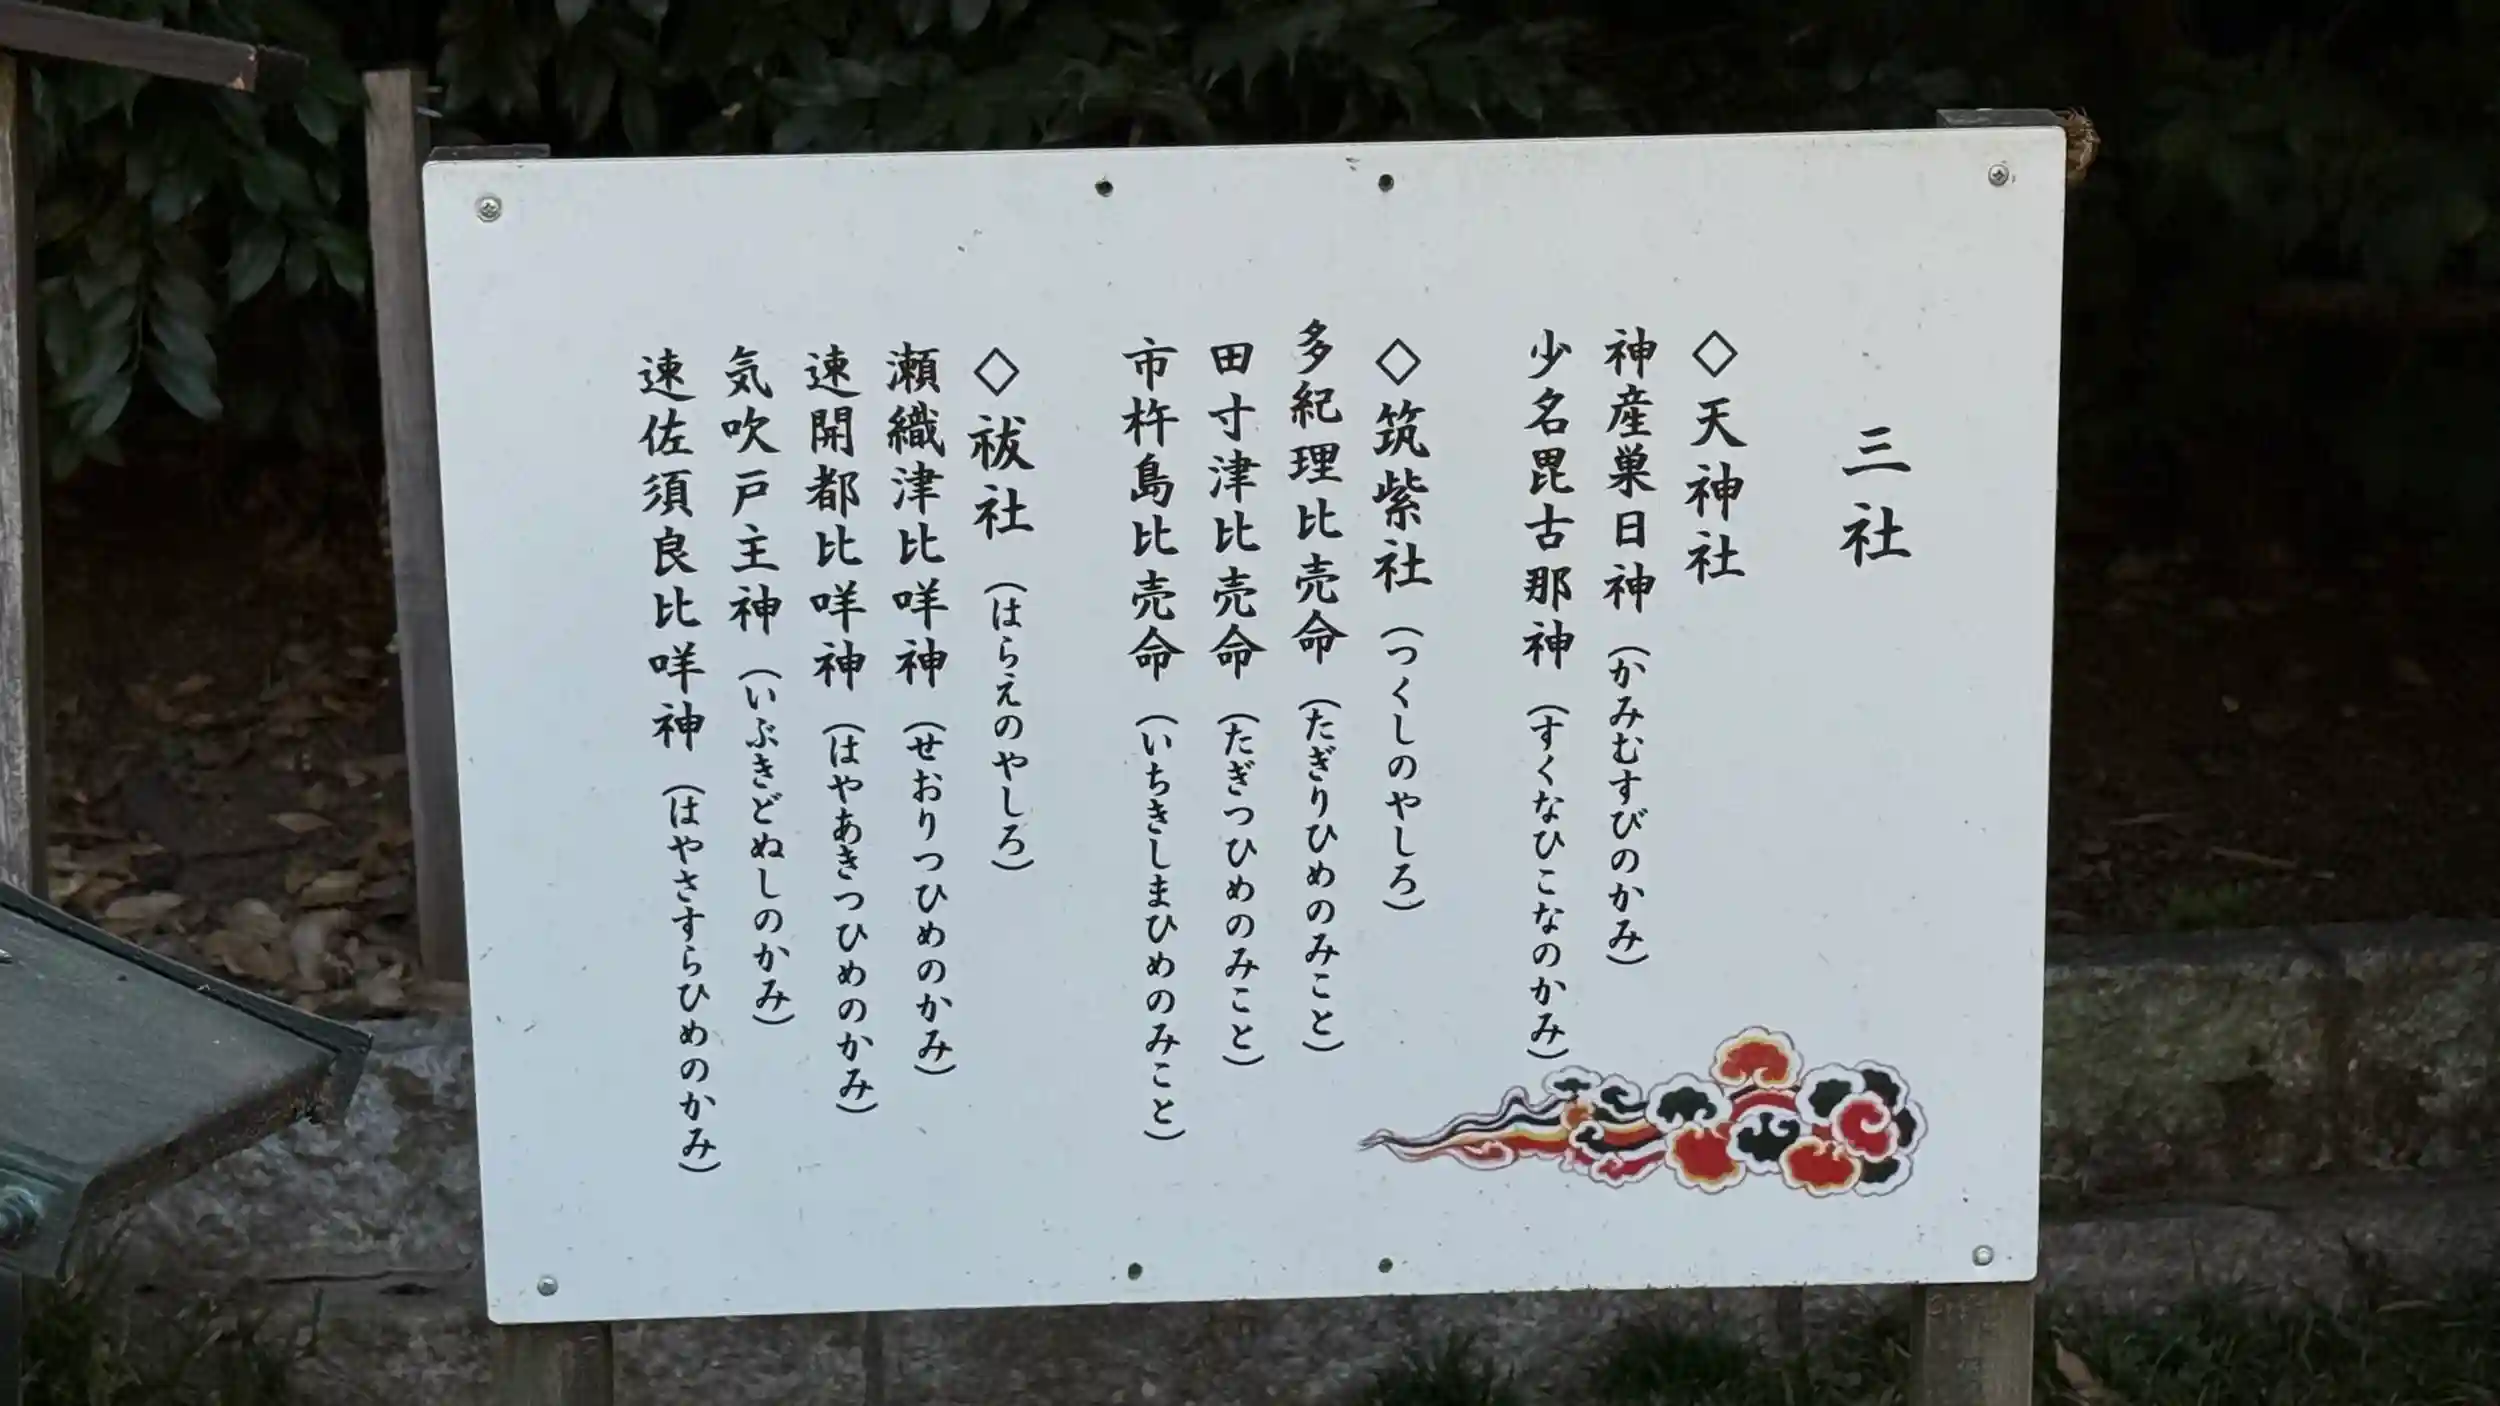 三社
◇天神社
神産巣日神（かみむすびのかみ）
少名毘古那神（すくなひこなのかみ）
◇筑紫社（つくしのやしろ）
多紀理比売命（たぎりひめのみこと）
田寸津比売命（たぎつひめのみこと）
市杵島比売命（いちきしまひめのみこと）
◇祓社（はらえのやしろ）
瀬織津比咩神（せおりつひめのかみ）
速開都比咩神（はやあきつひめのかみ）
気吹戸主神（いぶきどぬしのかみ）
速佐須良比咩神（はやさすらひめのかみ）